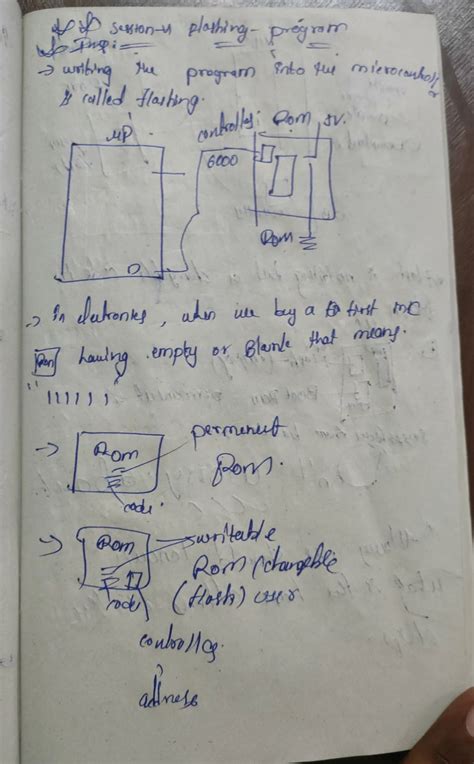 session-4 flashing - program
Impi
→ writing the program into the microcontroller
is called flashing.
MP
controller Rom 5V.
6000
Rom
→ In electronics, when we buy a first MC
Rom having empty or Blank that means.
"111111"
→ Rom permenent
Rom.
code.
→ Rom writable
Rom (changeble
code (flash) user
controller
address